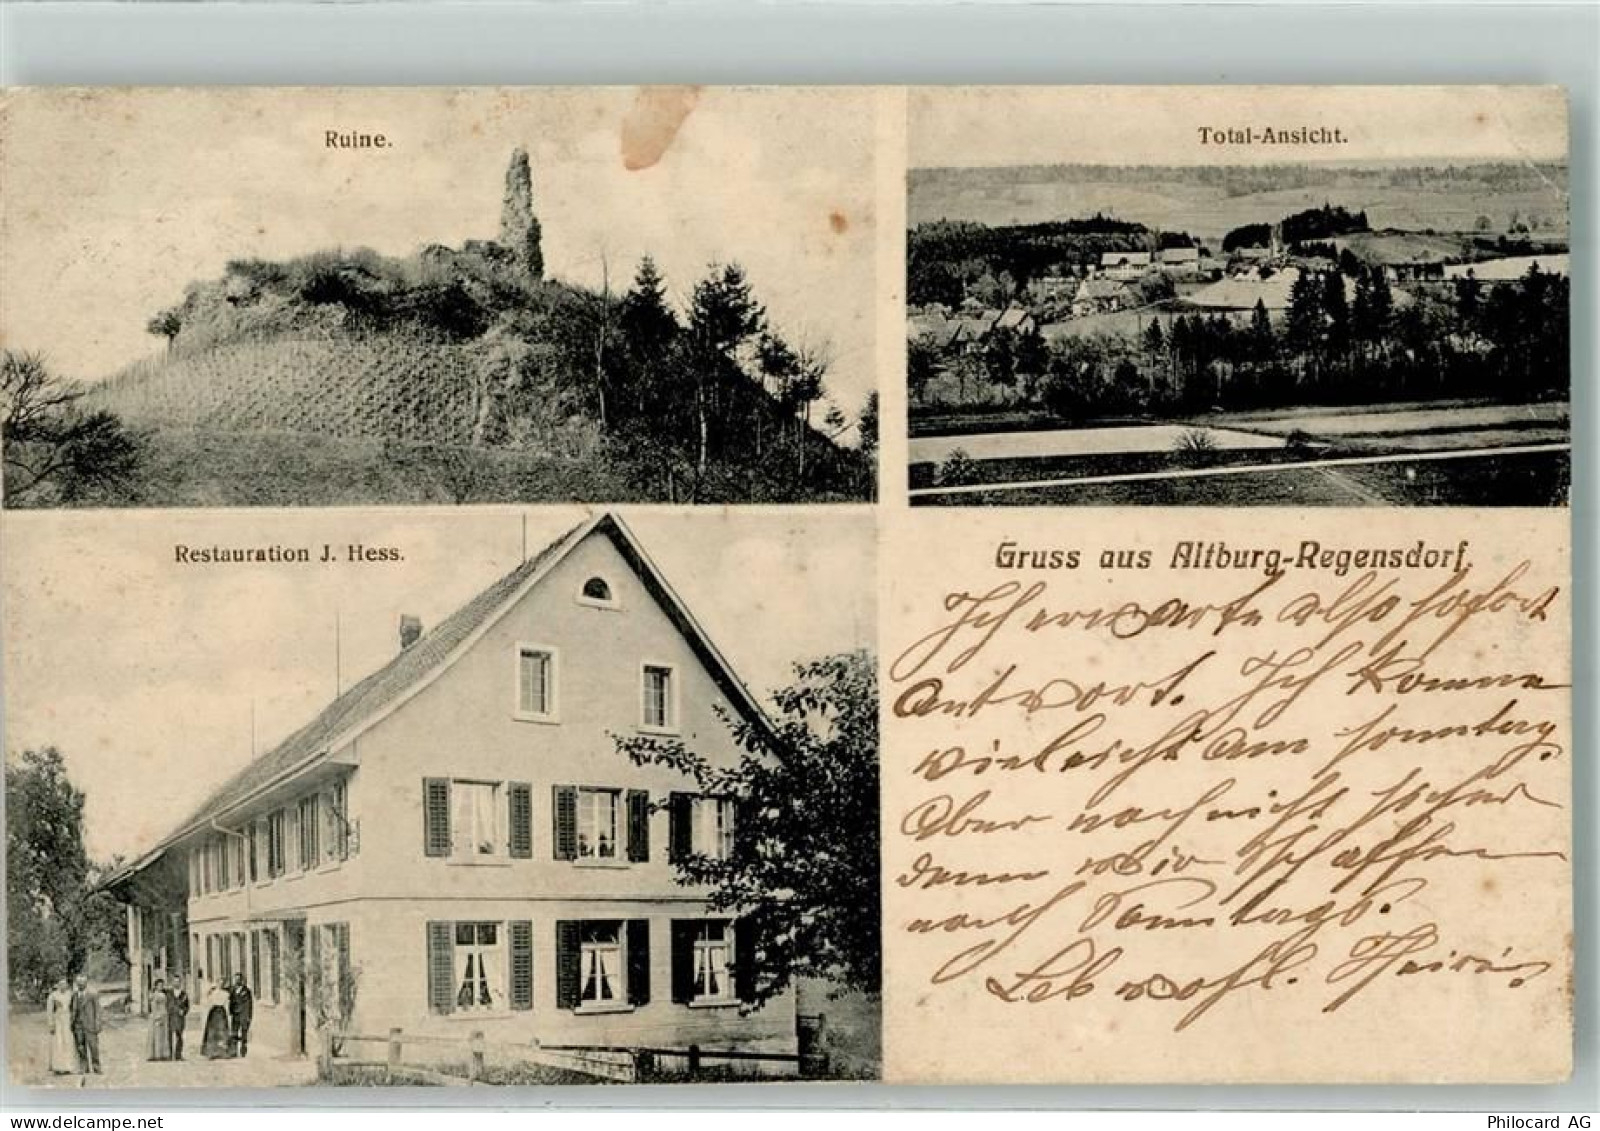 Ruine.
Total-Ansicht.
Restauration J. Hess.
Gruss aus Altburg-Regensdorf.
Ich erwarte also sofort
Antwort. Ich komme
vieleicht am Sonntag.
Aber noch nicht sicher
denn wir schaffen
noch Sonntags.
Leb wohl.
Philocard AG